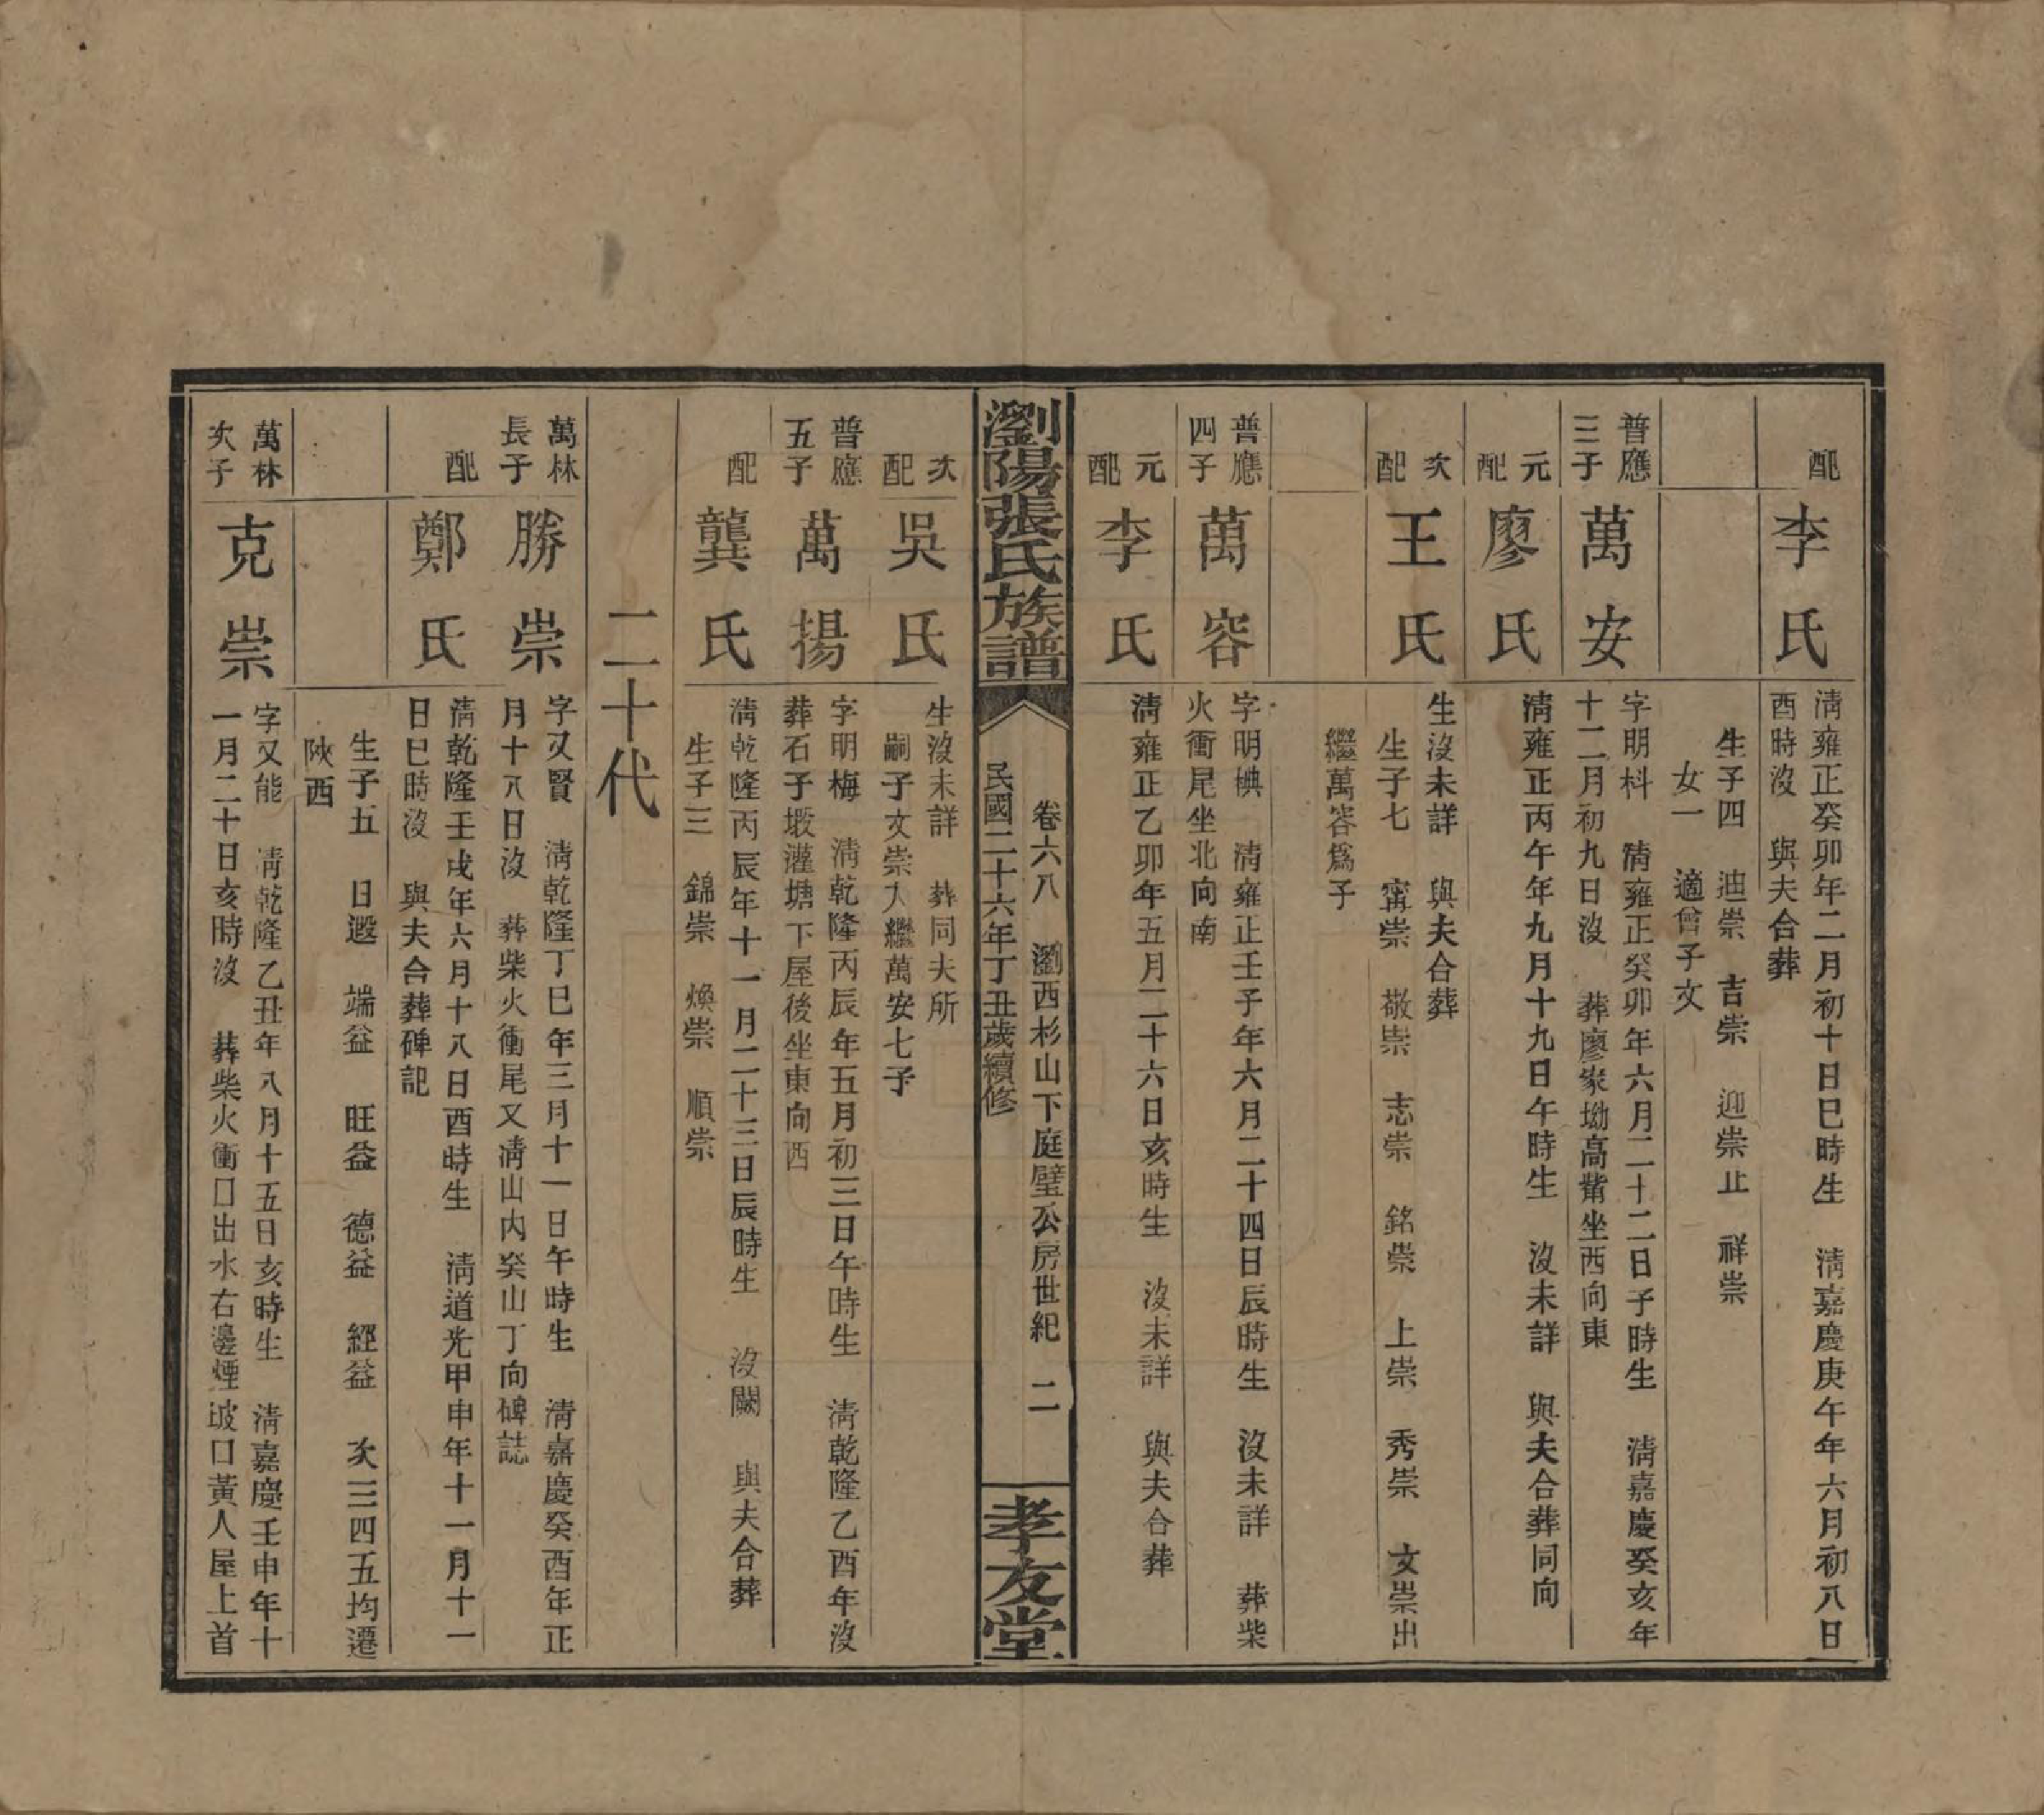 配
李氏
清雍正癸卯年二月初十日巳時生　清嘉慶庚午年六月初八日
酉時沒　與夫合葬
生子四　迪崇　吉崇　迎崇止　祥崇
女一　適曾子文
普應
三子
萬安
字明枓　清雍正癸卯年六月二十二日子時生　清嘉慶癸亥年
十二月初九日沒　葬廖家坳高觜坐西向東
元
配
廖氏
清雍正丙午年九月十九日午時生　沒未詳　與夫合葬同向
次
配
王氏
生沒未詳　與夫合葬
生子七　甯崇　敬崇　志崇　銘崇　上崇　秀崇　文崇出
繼萬容爲子
普應
四子
萬容
字明㮏　清雍正壬子年六月二十四日辰時生　沒未詳　葬柴
火衝尾坐北向南
元
配
李氏
清雍正乙卯年五月二十六日亥時生　沒未詳　與夫合葬
瀏陽張氏族譜
卷六八　瀏西杉山下庭璧公房世紀　二
民國二十六年丁丑歲續修
孝友堂
次
配
吳氏
生沒未詳　葬同夫所
嗣子文崇入繼萬安七子
普應
五子
萬揚
字明梅　清乾隆丙辰年五月初三日午時生　清乾隆乙酉年沒
葬石子塅灌塘下屋後坐東向西
配
龔氏
清乾隆丙辰年十一月二十三日辰時生　沒闕　與夫合葬
生子三　錦崇　煥崇　順崇
二十代
萬林
長子
勝崇
字又賢　清乾隆丁巳年三月十一日午時生　清嘉慶癸酉年正
月十八日沒　葬柴火衝尾又清山內癸山丁向碑誌
配
鄭氏
清乾隆壬戌年六月十八日酉時生　清道光甲申年十一月十一
日巳時沒　與夫合葬碑記
生子五　日遐　端益　旺益　德益　經益　次三四五均遷
陜西
萬林
次子
克崇
字又能　清乾隆乙丑年八月十五日亥時生　清嘉慶壬申年十
一月二十日亥時沒　葬柴火衝口出水右邊煙坡口黃人屋上首